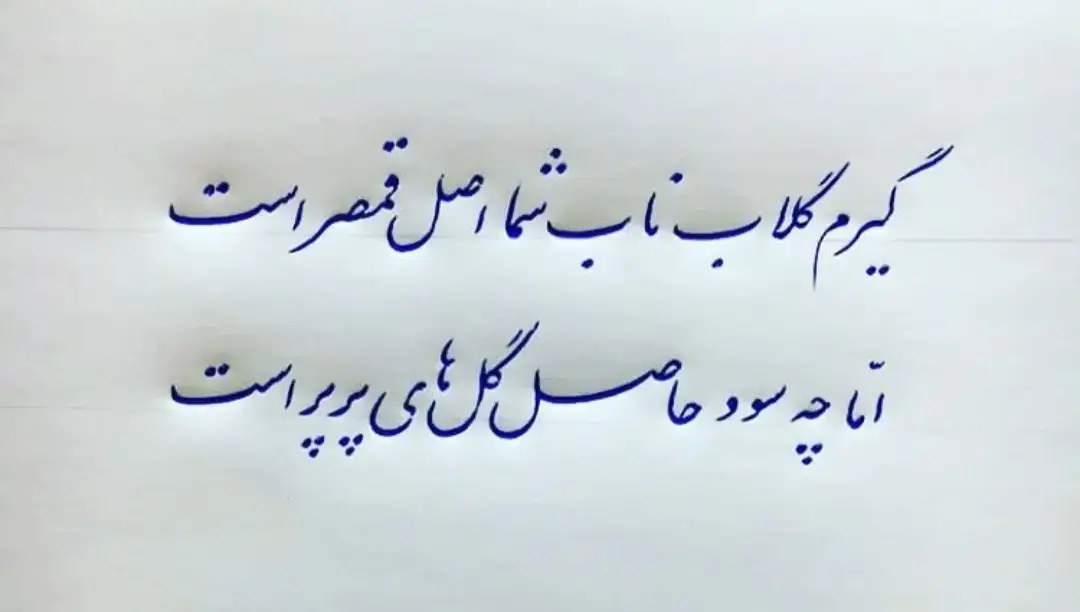 گیرم گلاب ناب شما اصل قمصر است
امّا چه سود حاصل گل‌های پرپر است